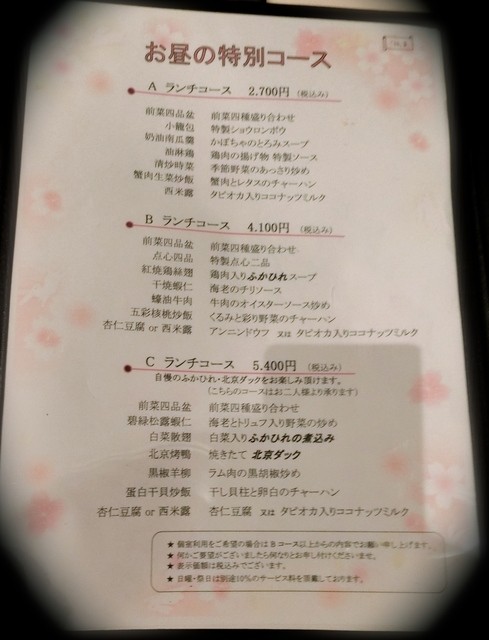 お昼の特別コース
A ランチコース 2.700円 (税込み)
前菜四品盆 前菜四種盛り合わせ
小籠包 特製ショウロンポウ
奶油南瓜羹 かぼちゃのとろみスープ
油淋鶏 鶏肉の揚げ物 特製ソース
清炒時菜 季節野菜のあっさり炒め
蟹肉生菜炒飯 蟹肉とレタスのチャーハン
西米露 タピオカ入りココナッツミルク
B ランチコース 4.100円 (税込み)
前菜四品盆 前菜四種盛り合わせ
点心四品 特製点心二品
紅焼鶏絲翅 鶏肉入りふかひれスープ
干焼蝦仁 海老のチリソース
蠔油牛肉 牛肉のオイスターソース炒め
五彩核桃炒飯 くるみと彩り野菜のチャーハン
杏仁豆腐 or 西米露 アンニンドウフ 又は タピオカ入りココナッツミルク
C ランチコース 5.400円 (税込み)
自慢のふかひれ・北京ダックをお楽しみ頂けます。
(こちらのコースはお二人様より承ります)
前菜四品盆 前菜四種盛り合わせ
碧緑松露蝦仁 海老とトリュフ入り野菜の炒め
白菜散翅 白菜入りふかひれの煮込み
北京烤鴨 焼きたて 北京ダック
黒椒羊柳 ラム肉の黒胡椒炒め
蛋白干貝炒飯 干し貝柱と卵白のチャーハン
杏仁豆腐 or 西米露 杏仁豆腐 又は タピオカ入りココナッツミルク
★ 個室利用をご希望の場合はBコース以上からの内容でお願い申し上げます。
★ 何かご要望がございましたら何なりとお申し付けくださいませ。
★ 表示価額は税込みでございます。
★ 日曜・祭日は別途10%のサービス料を頂戴しております。